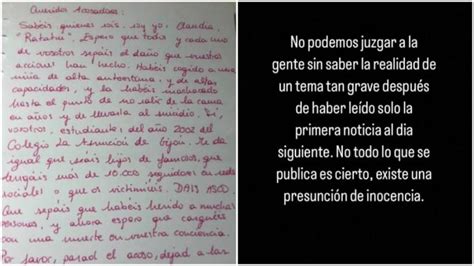 Queridos Acosadores:
Sabéis quienes sois, soy yo, Claudia,
"Ratatui". Espero que todos y cada uno
de vosotros sepáis el daño que vuestras
acciones han hecho. Habéis cogido a una
niña de alta autoestima, y de altas
capacidades, y la habéis machacado
hasta el punto de no salir de la cama
en años y de llevarla al suicidio. Sí,
vosotros, estudiantes del año 2002 del
Colegio la Asunción de Gijón. Me da
igual que seáis hijos de famosos, que
tengáis más de 10.000 seguidores en redes
sociales o que os victimicéis. DAIS ASCO.
Que sepáis que habéis herido a muchas
personas, y ahora espero que carguéis
con una muerte en vuestra conciencia.
Por favor, parad el acoso, dejad a las
No podemos juzgar a la
gente sin saber la realidad de
un tema tan grave después
de haber leído solo la
primera noticia al dia
siguiente. No todo lo que se
publica es cierto, existe una
presunción de inocencia.